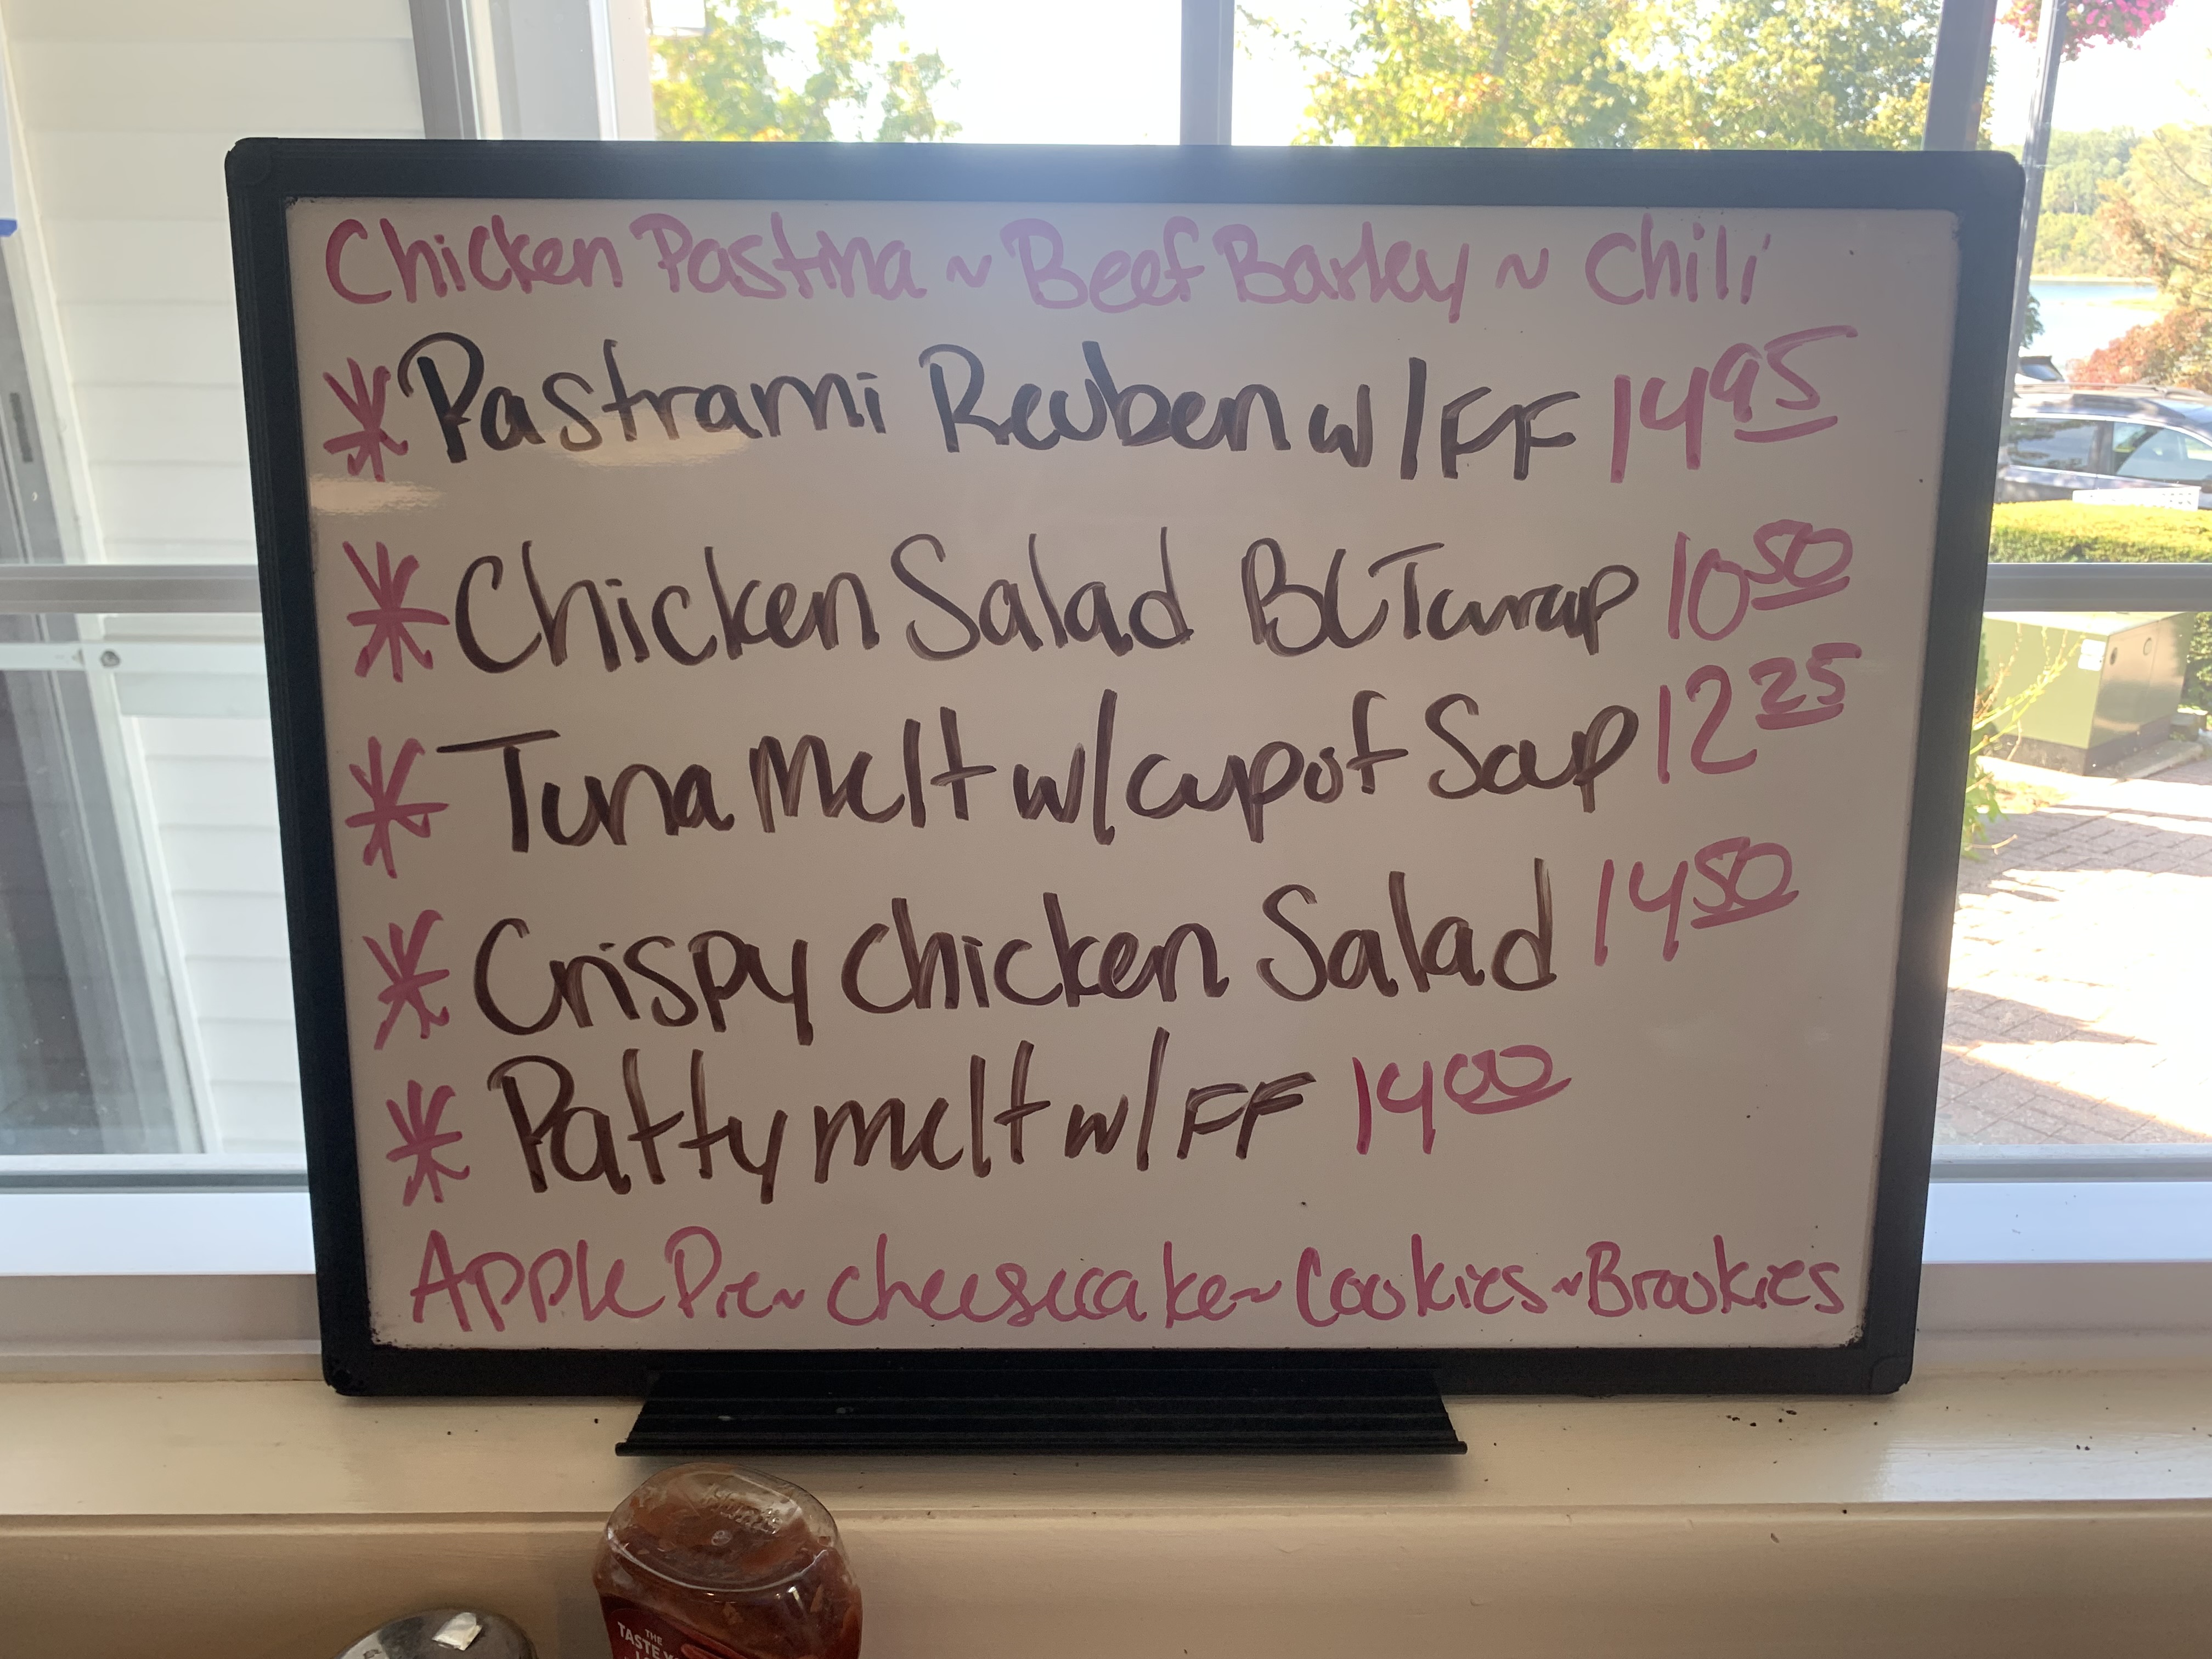 Chicken Pastina ~ Beef Barley ~ Chili
* Pastrami Reuben w/FF 14 95
* Chicken Salad BLT wrap 10 50
* Tuna Melt w/cup of Soup 12 25
* Crispy Chicken Salad 14 50
* Patty melt w/FF 14 00
Apple Pie ~ cheesecake ~ Cookies ~ Brookies
THE
TASTE